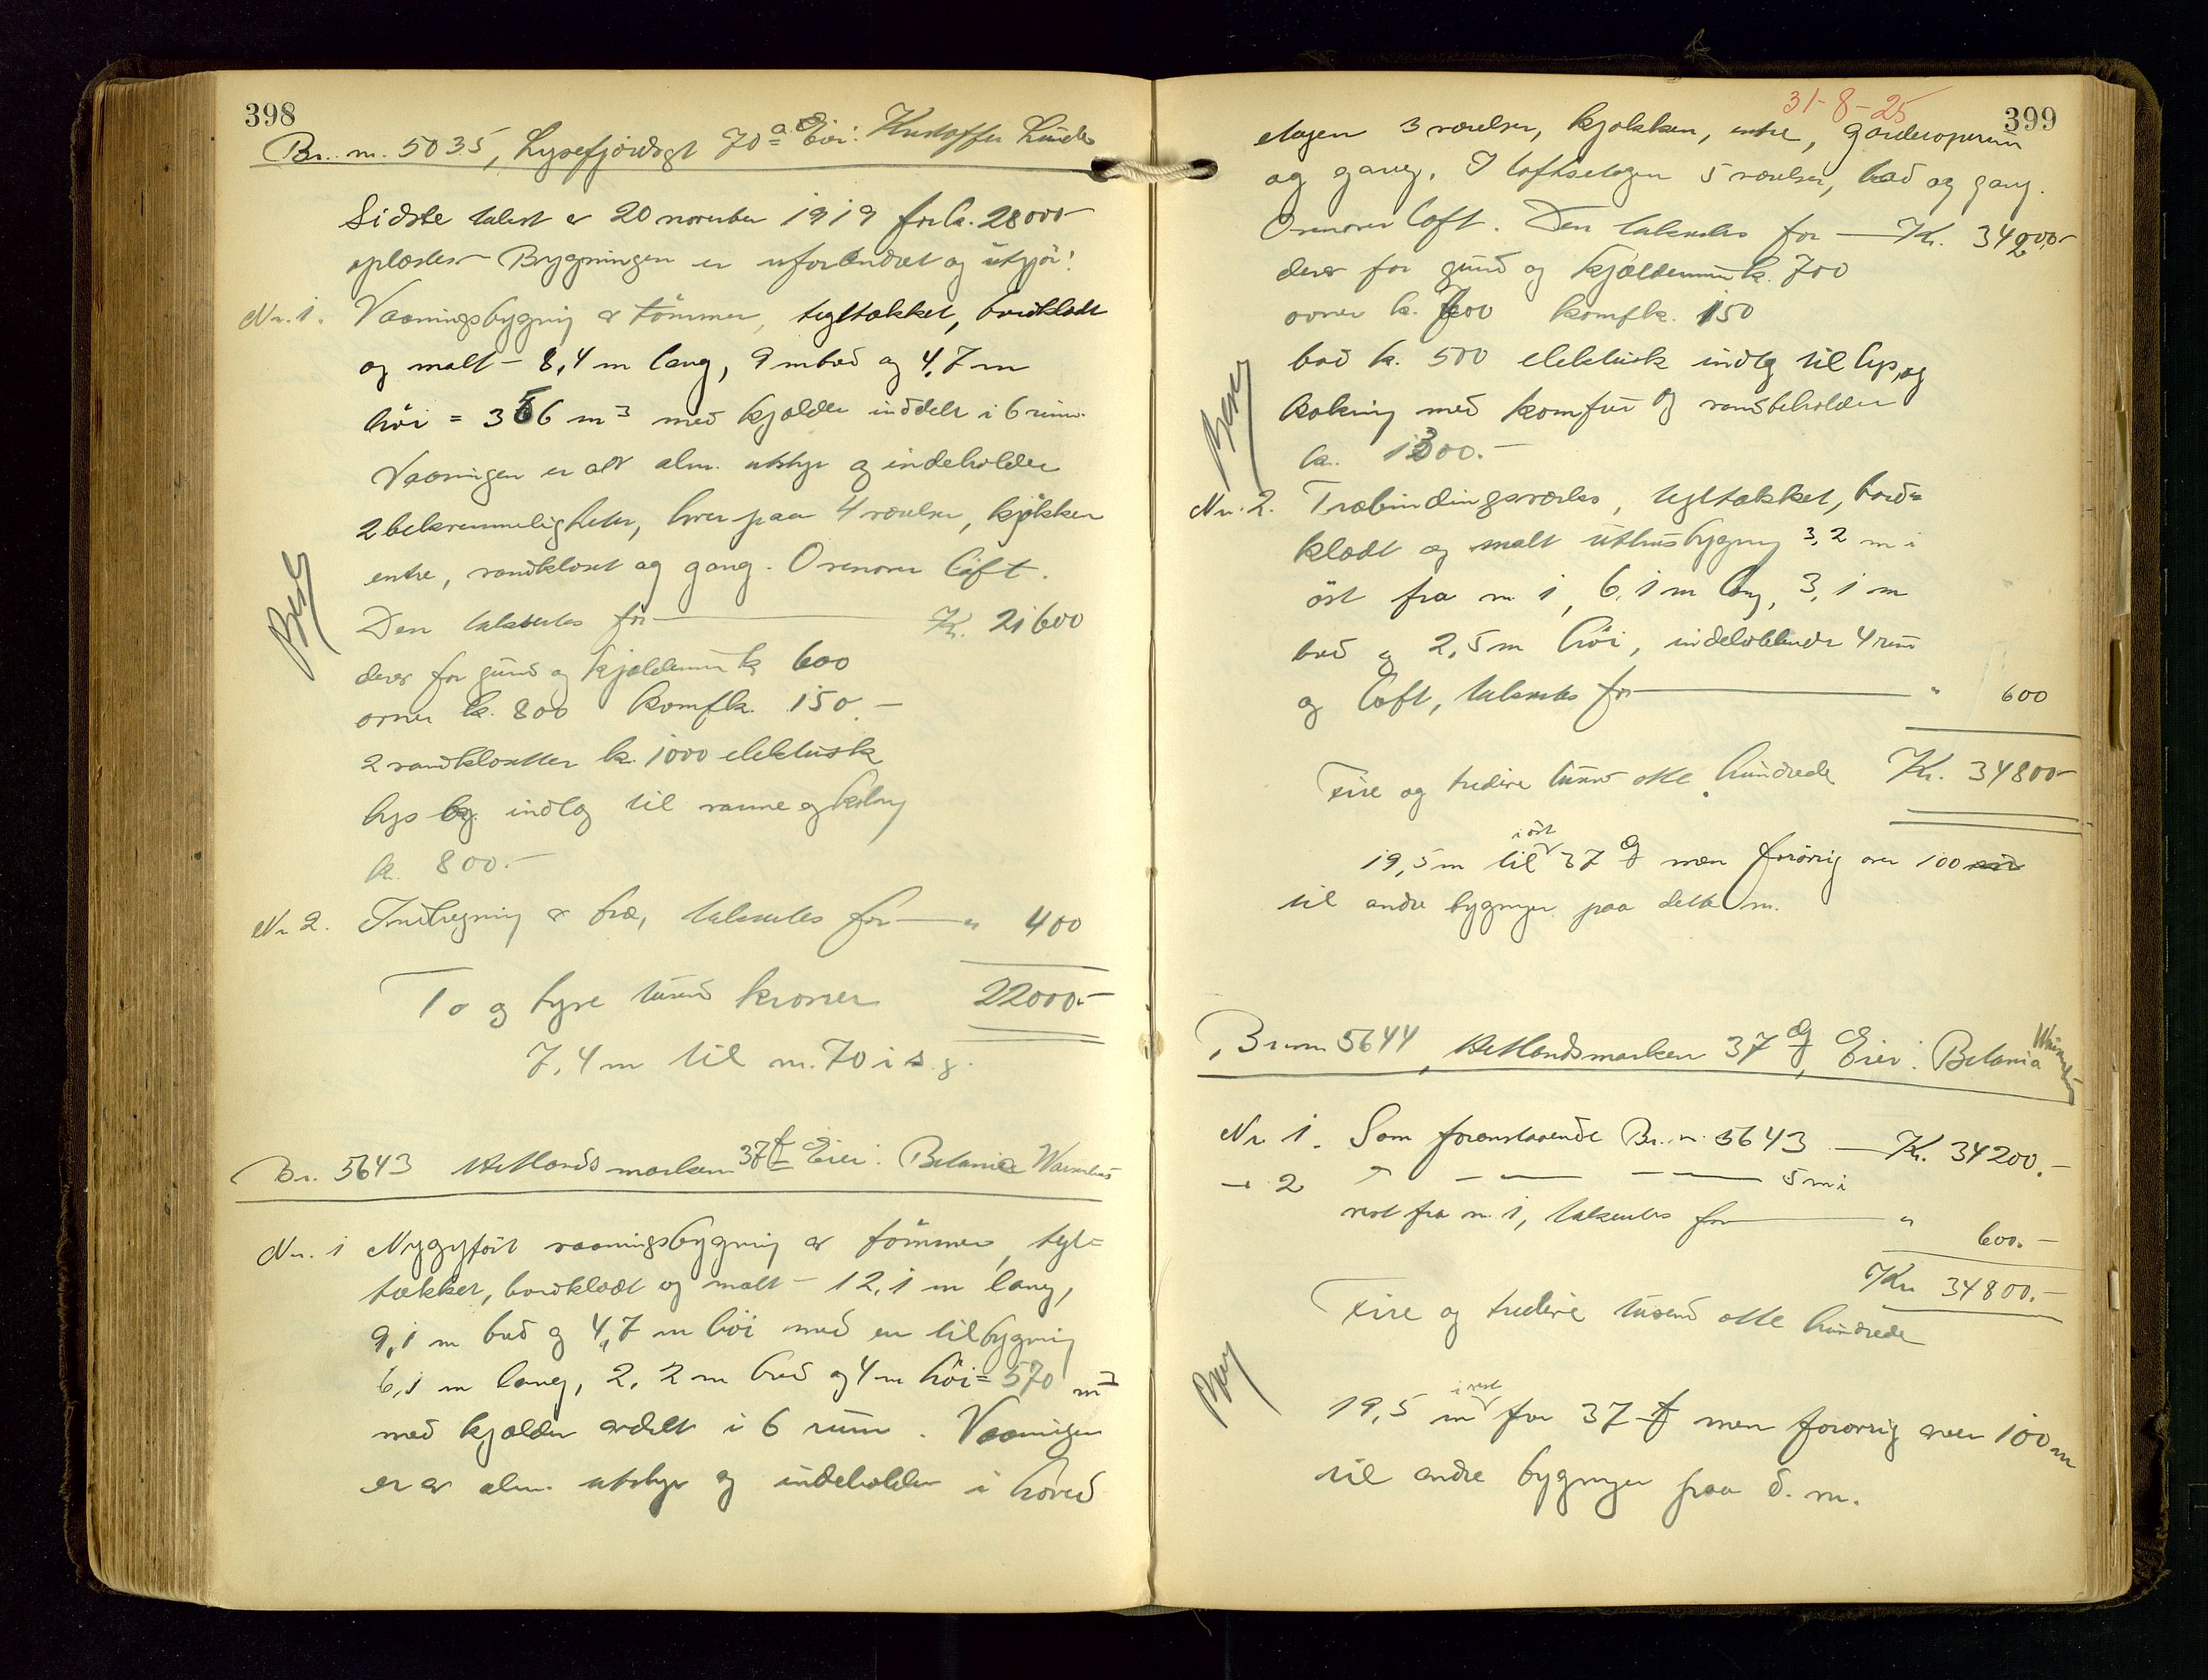 398
Br. nr. 5035, Lysefjordsgt 70a Eier: Kristoffer Lunde
Sidste takst er 20 november 1919 for k. 28000-
oplæstes - Bygningen er uforandret og utgjör:
Nr. 1. Vaaningsbygning av tömmer, tegltækket, bordklædt
og malt - 8,4 m lang, 9 m bred og 4,7 m
höi = 356 m3 med kjælder inddelt i 6 rum.
Vaaningen er av alm. utstyr og indeholder
2 bekvemmeligheter, hver paa 4 værelser, kjökken
entre, vandkloset og gang. Ovenover loft.
Den taksertes for Kr. 21600
derav for grund og kjældermur k 600
ovner k. 800 komf k. 150.-
2 vandklosetter k. 1000 elektrisk
lys og indlæg til varme og kokning
k. 800.-
Berg
Nr 2. Indhegning av træ, taksertes for " 400
To og tyve tusind kroner 22000.-
7,4 m til nr. 70 i s.g.
Br. 5643 Hetlandsmarken 37f Eier: Betania Waisenhus
Nr. 1 Nyopført vaaningsbygning av tömmer, tegl=
tækket, bordklædt og malt - 12,1 m lang,
9,1 m bred og 4,7 m höi med en tilbygning
6,1 m lang, 2,2 m bred og 4 m höi = 570 m3
med kjælder avdelt i 6 rum. Vaaningen
er av alm. utstyr og indeholder i hoved
31-8-25
399
etagen 3 værelser, kjøkken, entre, garderoperum
og gang. I loftsetagen 5 værelser, bad og gang.
Ovenover loft. Den taksertes for Kr. 34200-
derav for grund og kjældermur k. 700
ovner k. 700 komf k. 150
bad k. 500 elektrisk indlæg til lys, og
kokning med komfur og vandbeholder
k. 1300.-
Berg
Nr. 2. Træbindingsverks, tegltækket, bord=
klædt og malt uthusbygning 3,2 m i
öst fra nr 1, 6,1 m lang, 3,1 m
bred og 2,5 m höi, indeholdende 4 rum
og loft, taksertes for " 600
Fire og tredive tusind otte hundrede Kr. 34800-
19,5 m til i öst 37 g men forövrig over 100 m
til andre bygninger paa dette nr.
Br nr 5644, Hetlandsmarken 37 g, Eier: Betania Waisenhus
Nr 1. Som foranstaaende Br. nr. 5643 Kr. 34200.-
- 2 " - - - 5 m i
vest fra nr. 1, taksertes for " 600.-
Kr 34800.-
Fire og tredive tusend otte hundrede
Berg
19,5 m i vest for 37 f men forövrig over 100 m
til andre bygninger paa d. nr.